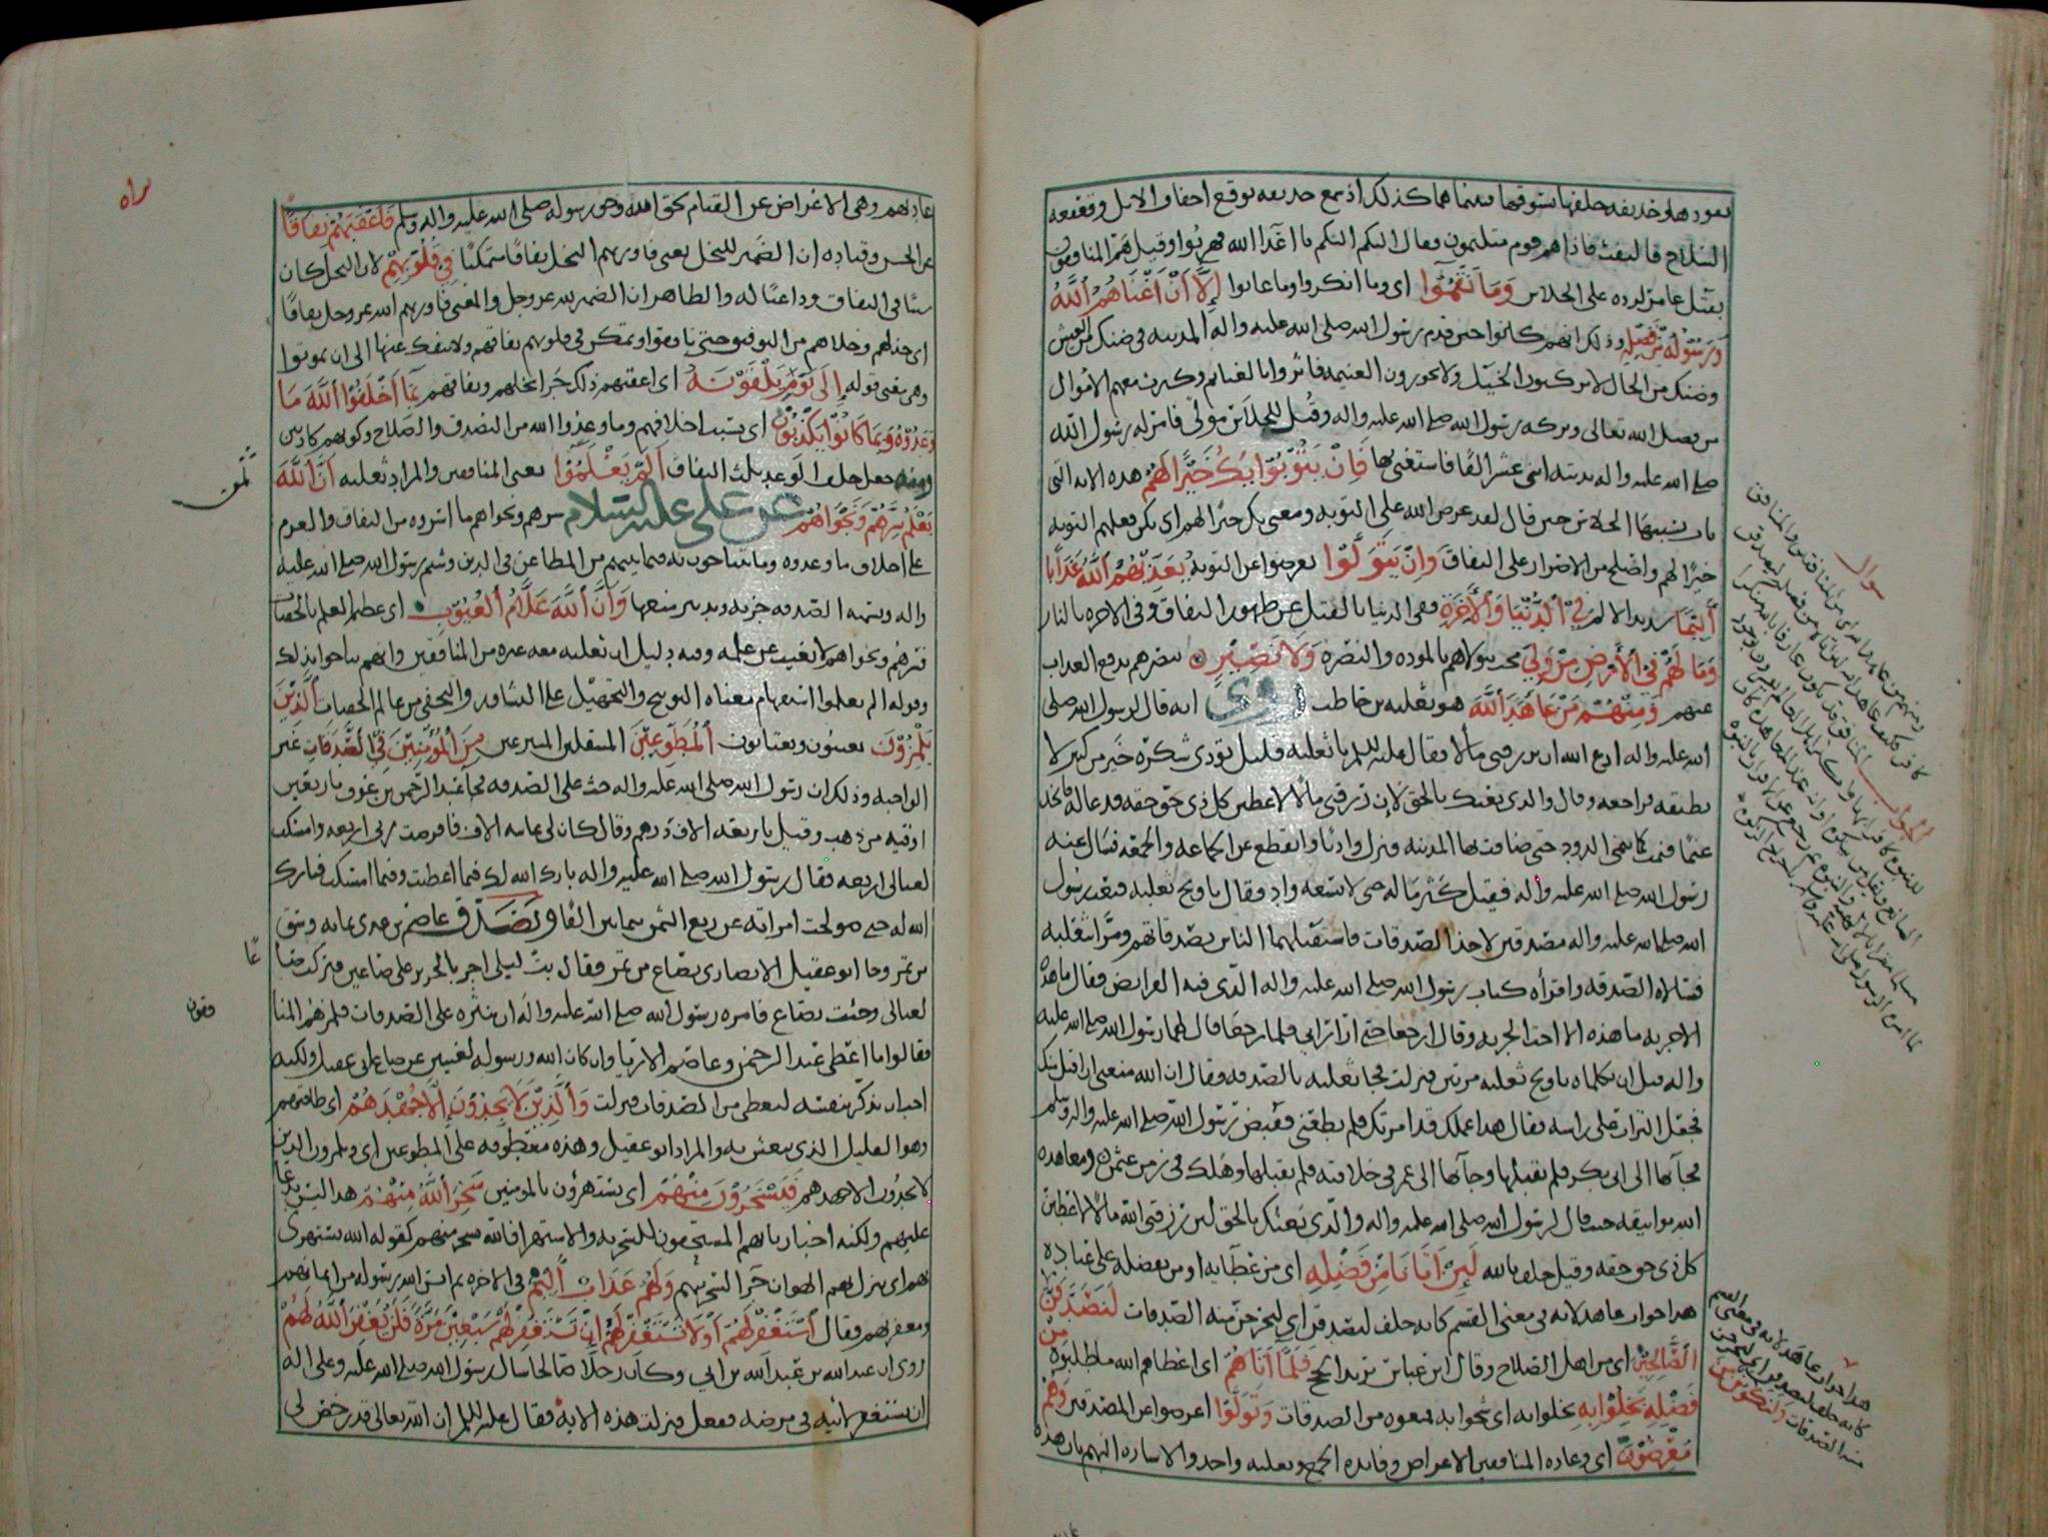 يقود هلو حذيفه خلفها يسوقها فبينما هما كذلك اذ سمع حذيفه بوقع اخفاف الابل وقعقعه
السلاح فالتفت فاذا هم قوم متلثمون فقال اليكم اليكم يا اعدا الله فهربوا وقيل هم المنافقون
بقتل عامر لرده على الجلاس وَمَا نَقَمُوٓا اي وما انكروا وما عابوا إِلَّآ أَنْ أَغْنَاهُمُ ٱللَّهُ
وَرَسُوْلُهُ مِنْ فَضْلِهِ وذلك انهم كانوا حين قدم رسول الله صلى الله عليه واله المدينه في ضنك من العيش
وضنك من الحال لا يركبون الخيل ولا يحوزون الغنيمه فاثروا بالغنايم وكثرت معهم الاموال
من فضل الله تعالى وبركه رسول الله صلى الله عليه واله وقُتل للجلاس مولًى فامر له رسول الله
صلى الله عليه واله بديته اثنى عشر الفًا فاستغنى بها فَإِنْ يَتُوْبُوْا يَكُ خَيْرًا لَهُمْ هذه الايه التي
تاب بسببها الجلاس حين قال لقد عرض الله علي التوبه ومعنى يك خيرًا لهم اي يكن فعلهم التوبه
خيرًا لهم واصلح من الاصرار على النفاق وَإِنْ يَتَوَلَّوْا يعرضوا عن التوبه يُعَذِّبْهُمُ ٱللَّهُ عَذَابًا
أَلِيْمًا شديد الالم فِي ٱلدُّنْيَا وَٱلْآخِرَةِ ففي الدنيا بالقتل عن ظهور النفاق وفي الاخره بالنار
وَمَا لَهُمْ فِي ٱلْأَرْضِ مِنْ وَلِيٍّ يتولاهم بالموده والنصره وَلَا نَصِيْرٍ ينصرهم بدفع العذاب
عنهم وَمِنْهُمْ مَنْ عَاهَدَ ٱللَّهَ هو ثعلبه بن حاطب روي انه قال لرسول الله صلى
الله عليه واله ادع الله ان يرزقني مالا فقال عليه السلم يا ثعلبه قليل تؤدي شكره خير من كثير لا
تطيقه فراجعه وقال والذي بعثك بالحق لإن رزقني مالا لاعطين كل ذي حق حقه فدعا له فاتخذ
غنمًا فنمت كما ينمي الدود حتى ضاقت بها المدينه فنزل واديًا وانقطع عن الجماعه والجمعه فسال عنه
رسول الله صلى الله عليه واله فقيل كثر ماله حتى لا يسعه وادٍ فقال يا ويح ثعلبه فبعث رسول
الله صلى الله عليه واله مصدقين لاخذ الصدقات فاستقبلهما الناس بصدقاتهم ومرّا بثعلبه
فسئلاه الصدقه واقرأه كتاب رسول الله صلى الله عليه واله الذي فيه الفرائض فقال ما هذه
الا جزيه ما هذه الا اخت الجزيه وقال ارجعا حتى ارى رايي فلما رجعا قال لهما رسول الله صلى الله عليه
واله قبل ان يكلماه يا ويح ثعلبه مرتين فنزلت فجا ثعلبه بالصدقه فقال ان الله منعني ان اقبل منك
فجعل التراب على راسه فقال هذا عملك قد امرتك فلم تطعني فقبض رسول الله صلى الله عليه واله وسلم
فجآ بها الى ابي بكر فلم يقبلها وجآ بها الى عمر في خلافته فلم يقبلها وهلك في زمن عثمن ومعاهده
الله مواثيقه حيث قال لرسول الله صلى الله عليه واله والذي بعثك بالحق لين رزقني الله مالًا لاعطين
كل ذي حق حقه وقيل حلف بالله لَئِنْ آتَانَا مِنْ فَضْلِهِ اي من عطايه او من تفضله على عباده
هذا جواب عاهد لانه في معنى القسم كانه حلف ليصدقن اي ليخرجن منه الصدقات لَنَصَّدَّقَنَّ
مِنَ الصَّالِحِيْنَ اي من اهل الصلاح وقال ابن عباس يريد الحج فَلَمَّآ آتَاهُمْ اي اعطاهم الله ما طلبوه مِنْ
فَضْلِهِ بَخِلُوْا بِهِ بخلوا به اي شحوا به فمنعوه من الصدقات وَتَوَلَّوْا اعرضوا عن المصدقين وَهُمْ
مُعْرِضُوْنَ اي وعاده المنافقين الاعراض وفايده الجمع وثعلبه واحد والاشاره انهم بان هذه
سؤال
الجواب
هذا جواب عاهد لانه في معنى القسم
كانه حلف ليصدقن اي ليخرجن
منه الصدقات وَلَنَكُوْنَنَّ مِنَ
عادتهم وهي الاعراض عن القيام بحق الله وحق رسوله صلى الله عليه واله وسلم فَأَعْقَبَهُمْ نِفَاقًا
عن الحسن وقتاده ان الضمير للبخل يعني فاورثهم البخل نفاقًا متمكنًا فِي قُلُوْبِهِمْ لان البخل كان
سببًا في النفاق وداعيًا له والظاهر ان الضمير لله عز وجل والمعنى فاورثهم الله عز وجل نفاقًا
اي خذلهم وخلاهم من التوفيق حتى نافقوا وتمكن في قلوبهم نفاقهم ولا ينفك عنها الى ان يموتوا
وهي معنى قوله إِلَى يَوْمِ يَلْقَوْنَهُ اي اعقبهم ذلك جزا بخلهم ونفاقهم بِمَآ أَخْلَفُوْا ٱللَّهَ مَا
وَعَدُوْهُ وَبِمَا كَانُوْا يَكْذِبُوْنَ اي بسبب اخلافهم وما وعدوا الله من التصدق والصلاح وكونهم كاذبين
ومنه جعل خلف الوعد ثلث النفاق أَلَمْ يَعْلَمُوْا يعني المنافقين والمراد ثعلبه أَنَّ ٱللَّهَ
يَعْلَمُ سِرَّهُمْ وَنَجْوَاهُمْ عن علي عليه السلام سرهم ونجواهم ما اسروه من النفاق والعزم
على اخلاف ما وعدوه وما يتناجون به فيما بينهم من المطاعن في الدين وشتم رسول الله صلى الله عليه
واله وتسميه الصدقه جزيه وتدبير منعها وَأَنَّ ٱللَّهَ عَلَّامُ ٱلْغُيُوْبِ اي عظيم العلم بالخفيات
فسرهم ونجواهم لا تغيب عن علمه وفيه دليل ان ثعلبه معه غيره من المنافقين وانهم تناجوا بذلك
وقوله الم يعلموا استفهام معناه التوبيخ والتجهيل على التشاور والتخفي من عالم الخفيات ٱلَّذِيْنَ
يَلْمِزُوْنَ يعيبون ويغتابون ٱلْمُطَّوِّعِيْنَ المتنفلين المتبرعين مِنَ ٱلْمُؤْمِنِيْنَ فِي ٱلصَّدَقَاتِ غير
الواجبه وذلك ان رسول الله صلى الله عليه واله حث على الصدقه فجا عبد الرحمن بن عوف باربعين
اوقيه من ذهب وقيل باربعه الاف درهم وقال كان لي ثمانيه الاف فاقرضت ربي اربعه وامسكت
لعيالى اربعه فقال رسول الله صلى الله عليه واله بارك الله لك فيما اعطيت وفيما امسكت فبارك
الله له حتى صولحت امراته عن ربع الثمن ثمانين الفا وتصدق عاصم بن عدي بمايه وسق
من تمر وجا ابو عقيل الانصاري بصاع من تمر وقال بت ليلي اجر بالجرير على صاعين فتركت صا
عًا
لعيالى وجئت بصاع فامره رسول الله صلى الله عليه واله ان ينثره على الصدقات فلمزهم المنا
فقون
فقالوا ما اعطى عبد الرحمن وعاصم الا ريا وان كان الله ورسوله لغنيين عن صاع ابى عقيل ولكنه
احب ان يذكر بنفسه ليعطى من الصدقات فنزلت وَٱلَّذِيْنَ لَا يَجِدُوْنَ إِلَّا جُهْدَهُمْ اي طاقتهم
وهو القليل الذي يتعيش به والمراد ابو عقيل وهذه معطوفه على المطوعين اي ويلمزون الذين
لا يجدون الا جهدهم فَيَسْخَرُوْنَ مِنْهُمْ اي يستهزؤن بالمومنين سَخِرَ ٱللَّهُ مِنْهُمْ هذا ليس بدعا
عليهم ولكنه اخبار بانهم المستحقون للسخريه والاستهزا فالله سخر منهم كقوله الله يستهزى
بهم اي ينزل بهم الهوان جزا لسخريتهم وَلَهُمْ عَذَابٌ أَلِيْمٌ في الاخره ثم ايس الله رسوله من ايمانهم
ومغفرتهم فقال ٱسْتَغْفِرْ لَهُمْ أَوْ لَا تَسْتَغْفِرْ لَهُمْ إِنْ تَسْتَغْفِرْ لَهُمْ سَبْعِيْنَ مَرَّةً فَلَنْ يَغْفِرَ ٱللَّهُ لَهُمْ
روي ان عبد الله بن عبد الله بن ابي وكان رجلًا صالحا سال رسول الله صلى الله عليه وعلى اله
ان يستغفر لابيه في مرضه ففعل فنزلت هذه الايه فقال عليه السلم ان الله تعالى قد رخص لي